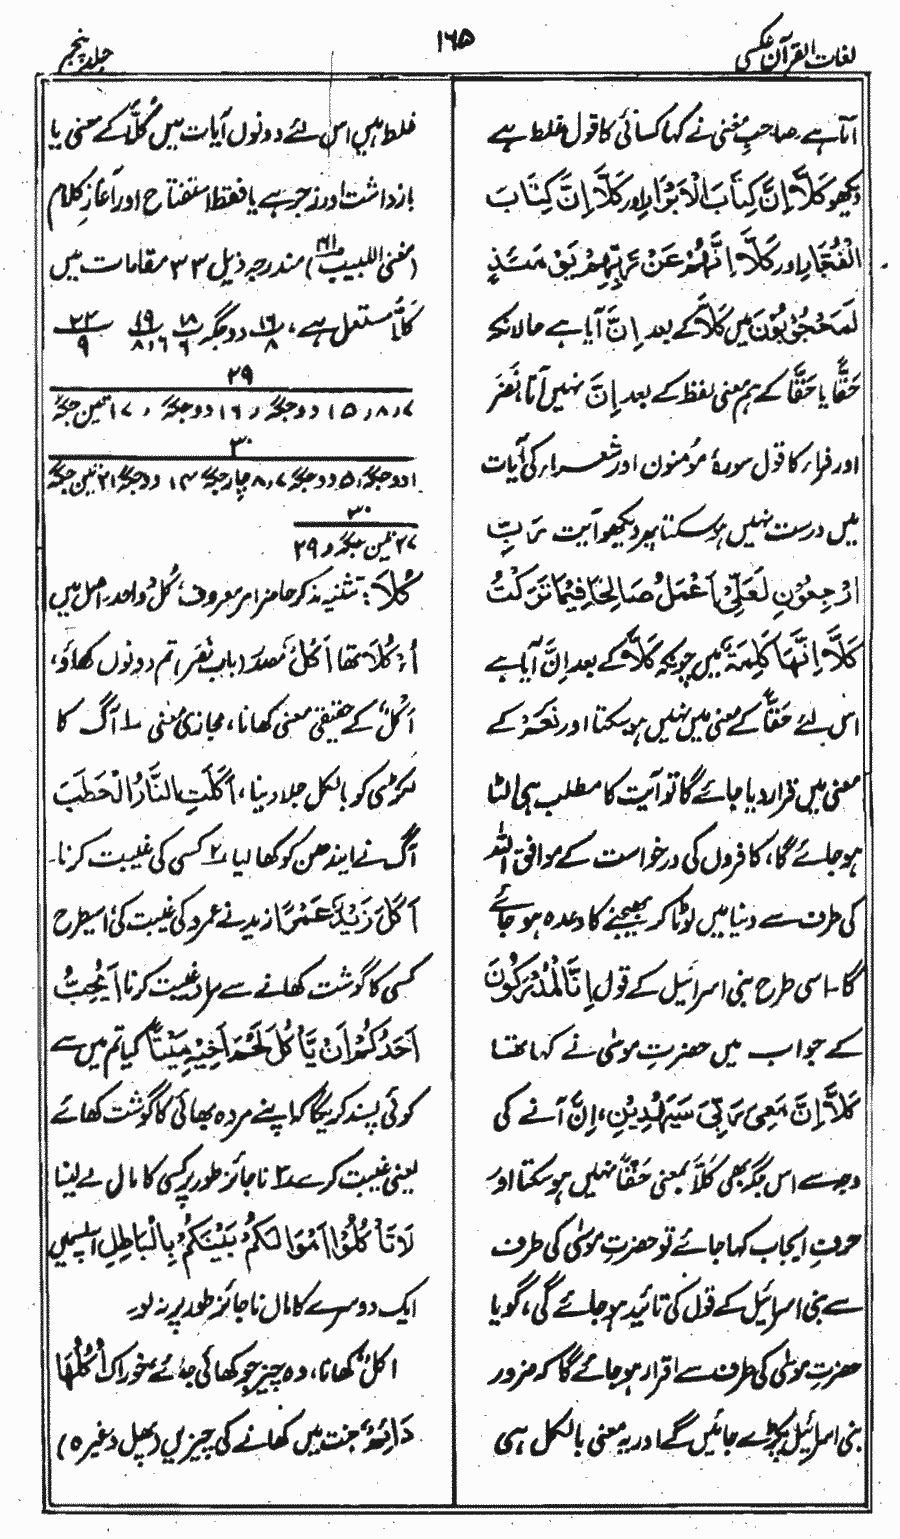 لغات القرآن عکسی
۱۶۵
جلد پنجم
آتا ہے۔ صاحبِ مغنی نے کہا کسائی کا قول غلط ہے
دیکھو کَلَّا اِنَّ کِتَابَ الْاَبْرَارِ اور کَلَّا اِنَّ کِتَابَ
الْفُجَّارِ اور کَلَّا اِنَّهُمْ عَنْ رَبِّهِمْ یَوْمَئِذٍ
لَمَحْجُوْبُوْنَ میں کَلَّا کے بعد اِنَّ آیا ہے حالانکہ
حَقًّا یا حَقًّا کے ہم معنی لفظ کے بعد اِنَّ نہیں آتا، نَضر
اور فراء کا قول سورۂ مؤمنون اور شعراء کی آیات
میں درست نہیں ہو سکتا پھر دیکھو آیت رَبِّ
ارْجِعُوْنِ لَعَلِّیْ اَعْمَلُ صَالِحًا فِیْمَا تَرَکْتُ
کَلَّا اِنَّهَا کَلِمَةٌ میں چونکہ کَلَّا کے بعد اِنَّ آیا ہے
اس لئے حَقًّا کے معنی میں نہیں ہو سکتا اور نَعَمْ کے
معنی میں قرار دیا جائے گا تو آیت کا مطلب ہی الٹا
ہو جائے گا، کافروں کی درخواست کے موافق اللہ
کی طرف سے دنیا میں لوٹا کر بھیجنے کا وعدہ ہو جائے
گا۔ اسی طرح بنی اسرائیل کے قول اِنَّا لَمُدْرَکُوْنَ
کے جواب میں حضرتِ موسیٰ نے کہا تھا
کَلَّا اِنَّ مَعِیَ رَبِّیْ سَیَهْدِیْنِ، اِنَّ آنے کی
وجہ سے اس جگہ بھی کَلَّا بمعنی حَقًّا نہیں ہو سکتا اور
حرفِ ایجاب کہا جائے تو حضرتِ موسیٰ کی طرف
سے بنی اسرائیل کے قول کی تائید ہو جائے گی، گویا
حضرتِ موسیٰ کی طرف سے اقرار ہو جائے گا کہ ضرور
بنی اسرائیل پکڑے جائیں گے اور یہ معنی بالکل ہی
غلط ہیں اس لئے دونوں آیات میں کَلَّا کے معنی یا
بازداشت اور زجر ہے یا فقط استفتاح اور آغازِ کلام
(مغنی اللبیب ۱۶۱) مندرجہ ذیل ۳۳ مقامات میں
کَلَّا مستعمل ہے، ۱۶/۸ دو جگہ ۱۸/۶ ۱۹/۸،۶ ۲۲/۹
۲۹
۷، ۸، ۱۵ دو جگہ، ۱۶ دو جگہ، ۱۷ تین جگہ
۳۰
۱ دو جگہ، ۵ دو جگہ، ۷، ۸ چار جگہ، ۱۳ دو جگہ، ۲۱ تین جگہ
۳۰
۲۷ تین جگہ و ۲۹
کُلَا: تثنیہ مذکر حاضر امر معروف، کُلْ واحد۔ اصل میں
اُءْکُلَا تھا اَکْلٌ مصدر (باب نَصَر) تم دونوں کھاؤ،
اَکْلٌ کے حقیقی معنی کھانا، مجازی معنی ۱ آگ کا
لکڑی کو بالکل جلا دینا، اَکَلَتِ النَّارُ الْحَطَبَ
آگ نے ایندھن کو کھا لیا ۲ کسی کی غیبت کرنا۔
اَکَلَ زَیْدٌ عَمْرًا زید نے عمرو کی غیبت کی، اسی طرح
کسی کا گوشت کھانے سے مراد غیبت کرنا اَیُحِبُّ
اَحَدُکُمْ اَنْ یَّاْکُلَ لَحْمَ اَخِیْهِ مَیْتًا کیا تم میں سے
کوئی پسند کریگا کہ اپنے مردہ بھائی کا گوشت کھائے
یعنی غیبت کرے ۳ ناجائز طور پر کسی کا مال لے لینا
لَا تَاْکُلُوْا اَمْوَالَکُمْ بَیْنَکُمْ بِالْبَاطِلِ آپس میں
ایک دوسرے کا مال ناجائز طور پر نہ لو۔
اُکُلٌ کھانا، وہ چیز جو کھائی جائے خوراک اُکُلُهَا
دَائِمٌ جنت میں کھانے کی چیزیں (پھل وغیرہ)